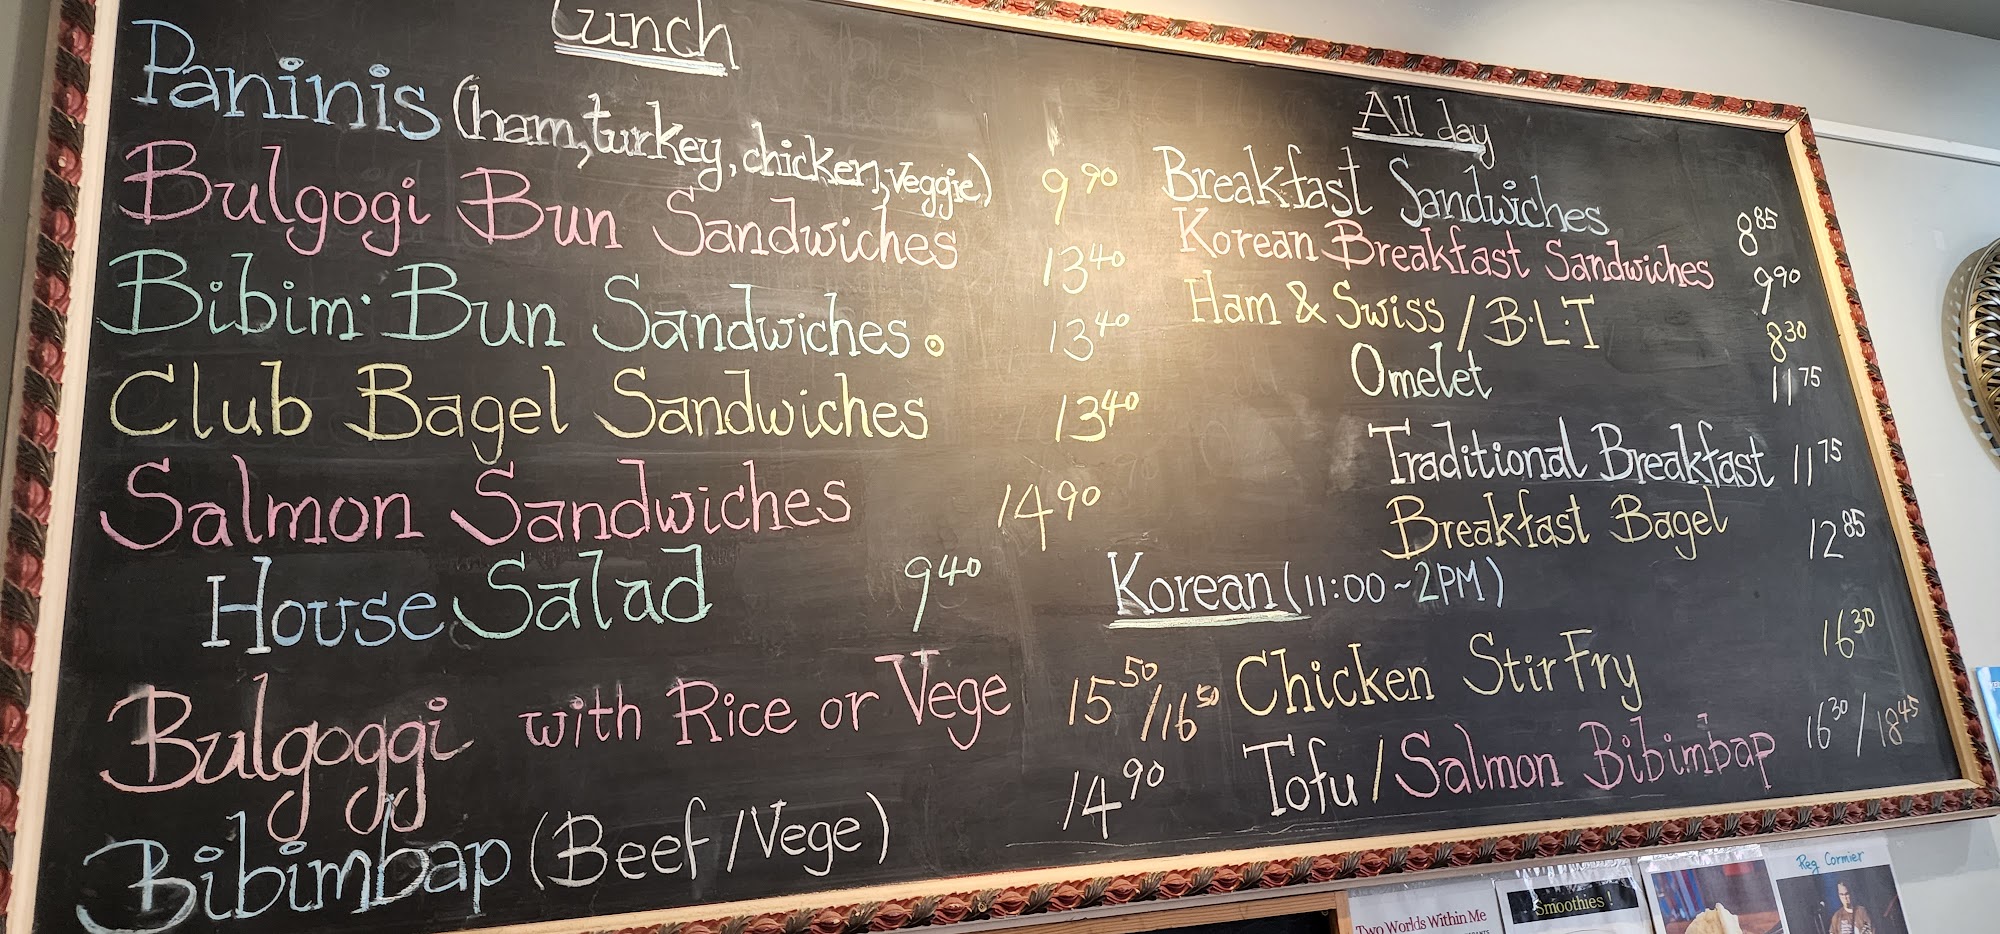 Lunch
Paninis (ham, turkey, chicken, veggie) 9 90
Bulgogi Bun Sandwiches 13 40
Bibim Bun Sandwiches 13 40
Club Bagel Sandwiches 13 40
Salmon Sandwiches 14 90
House Salad 9 40
Bulgoggi with Rice or Vege 15 50 / 16 50
Bibimbap (Beef / Vege) 14 90
All day
Breakfast Sandwiches 8 85
Korean Breakfast Sandwiches 9 90
Ham & Swiss / B.L.T 8 30
Omelet 11 75
Traditional Breakfast 11 75
Breakfast Bagel 12 85
Korean (11:00 ~ 2PM)
Chicken Stir Fry 16 30
Tofu / Salmon Bibimbap 16 30 / 18 45
Two Worlds Within Me
Smoothies!
Reg Cormier